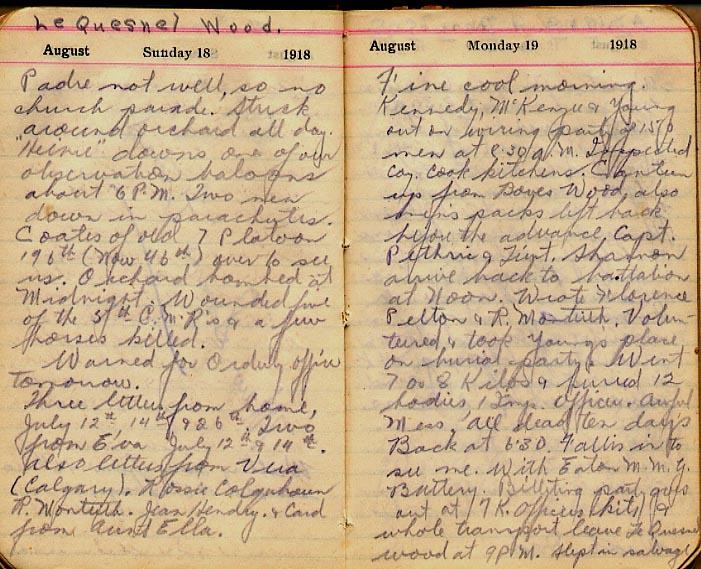 Le Quesnel Wood.
August Sunday 18 1918
Padre not well, so no
church parade. Stuck
around orchard all day.
"Heinie" downs one of our
observation baloons
about 6 P.M. Two men
down in parachutes.
Coates of old 7 Platoon
196th (Now 46th) over to see
us. Orchard bombed at
Midnight. Wounded five
of the 5th C.M.R's & a few
horses killed.
Warned for Orderly officer
tomorrow.
Three letters from home,
July 12th, 14th & 26th. Two
from Eva July 12th & 14th.
Also letters from Vera
(Calgary). Flossie Colquhoun
R. Monteith. Jean Hendry. & Card
from Aunt Ella.
August Monday 19 1918
Fine cool morning.
Kennedy, McKenzie & Young
out on wiring party of 150
men at 8.30 A.M. Inspected
Coy. cook kitchens. Canteen
up from Boves Wood, also
men's packs left back
before the advance. Capt.
Pethrie & Lieut. Shannon
arrive back to battalion
at Noon. Wrote Florence
Pelton & R. Monteith. Volun-
teered & took Young's place
on burial party. Went
7 or 8 Kilos & buried 12
bodies, 1 Imp. Officer. Awful
Mess, all dead ten days
Back at 6.30. Fallis in to
see me. With Eaton M.M.G.
Battery. Billeting party goes
out at 7 K. Officers kits &
whole transport leave Le Quesnel
wood at 9 P.M. Slept in salvage